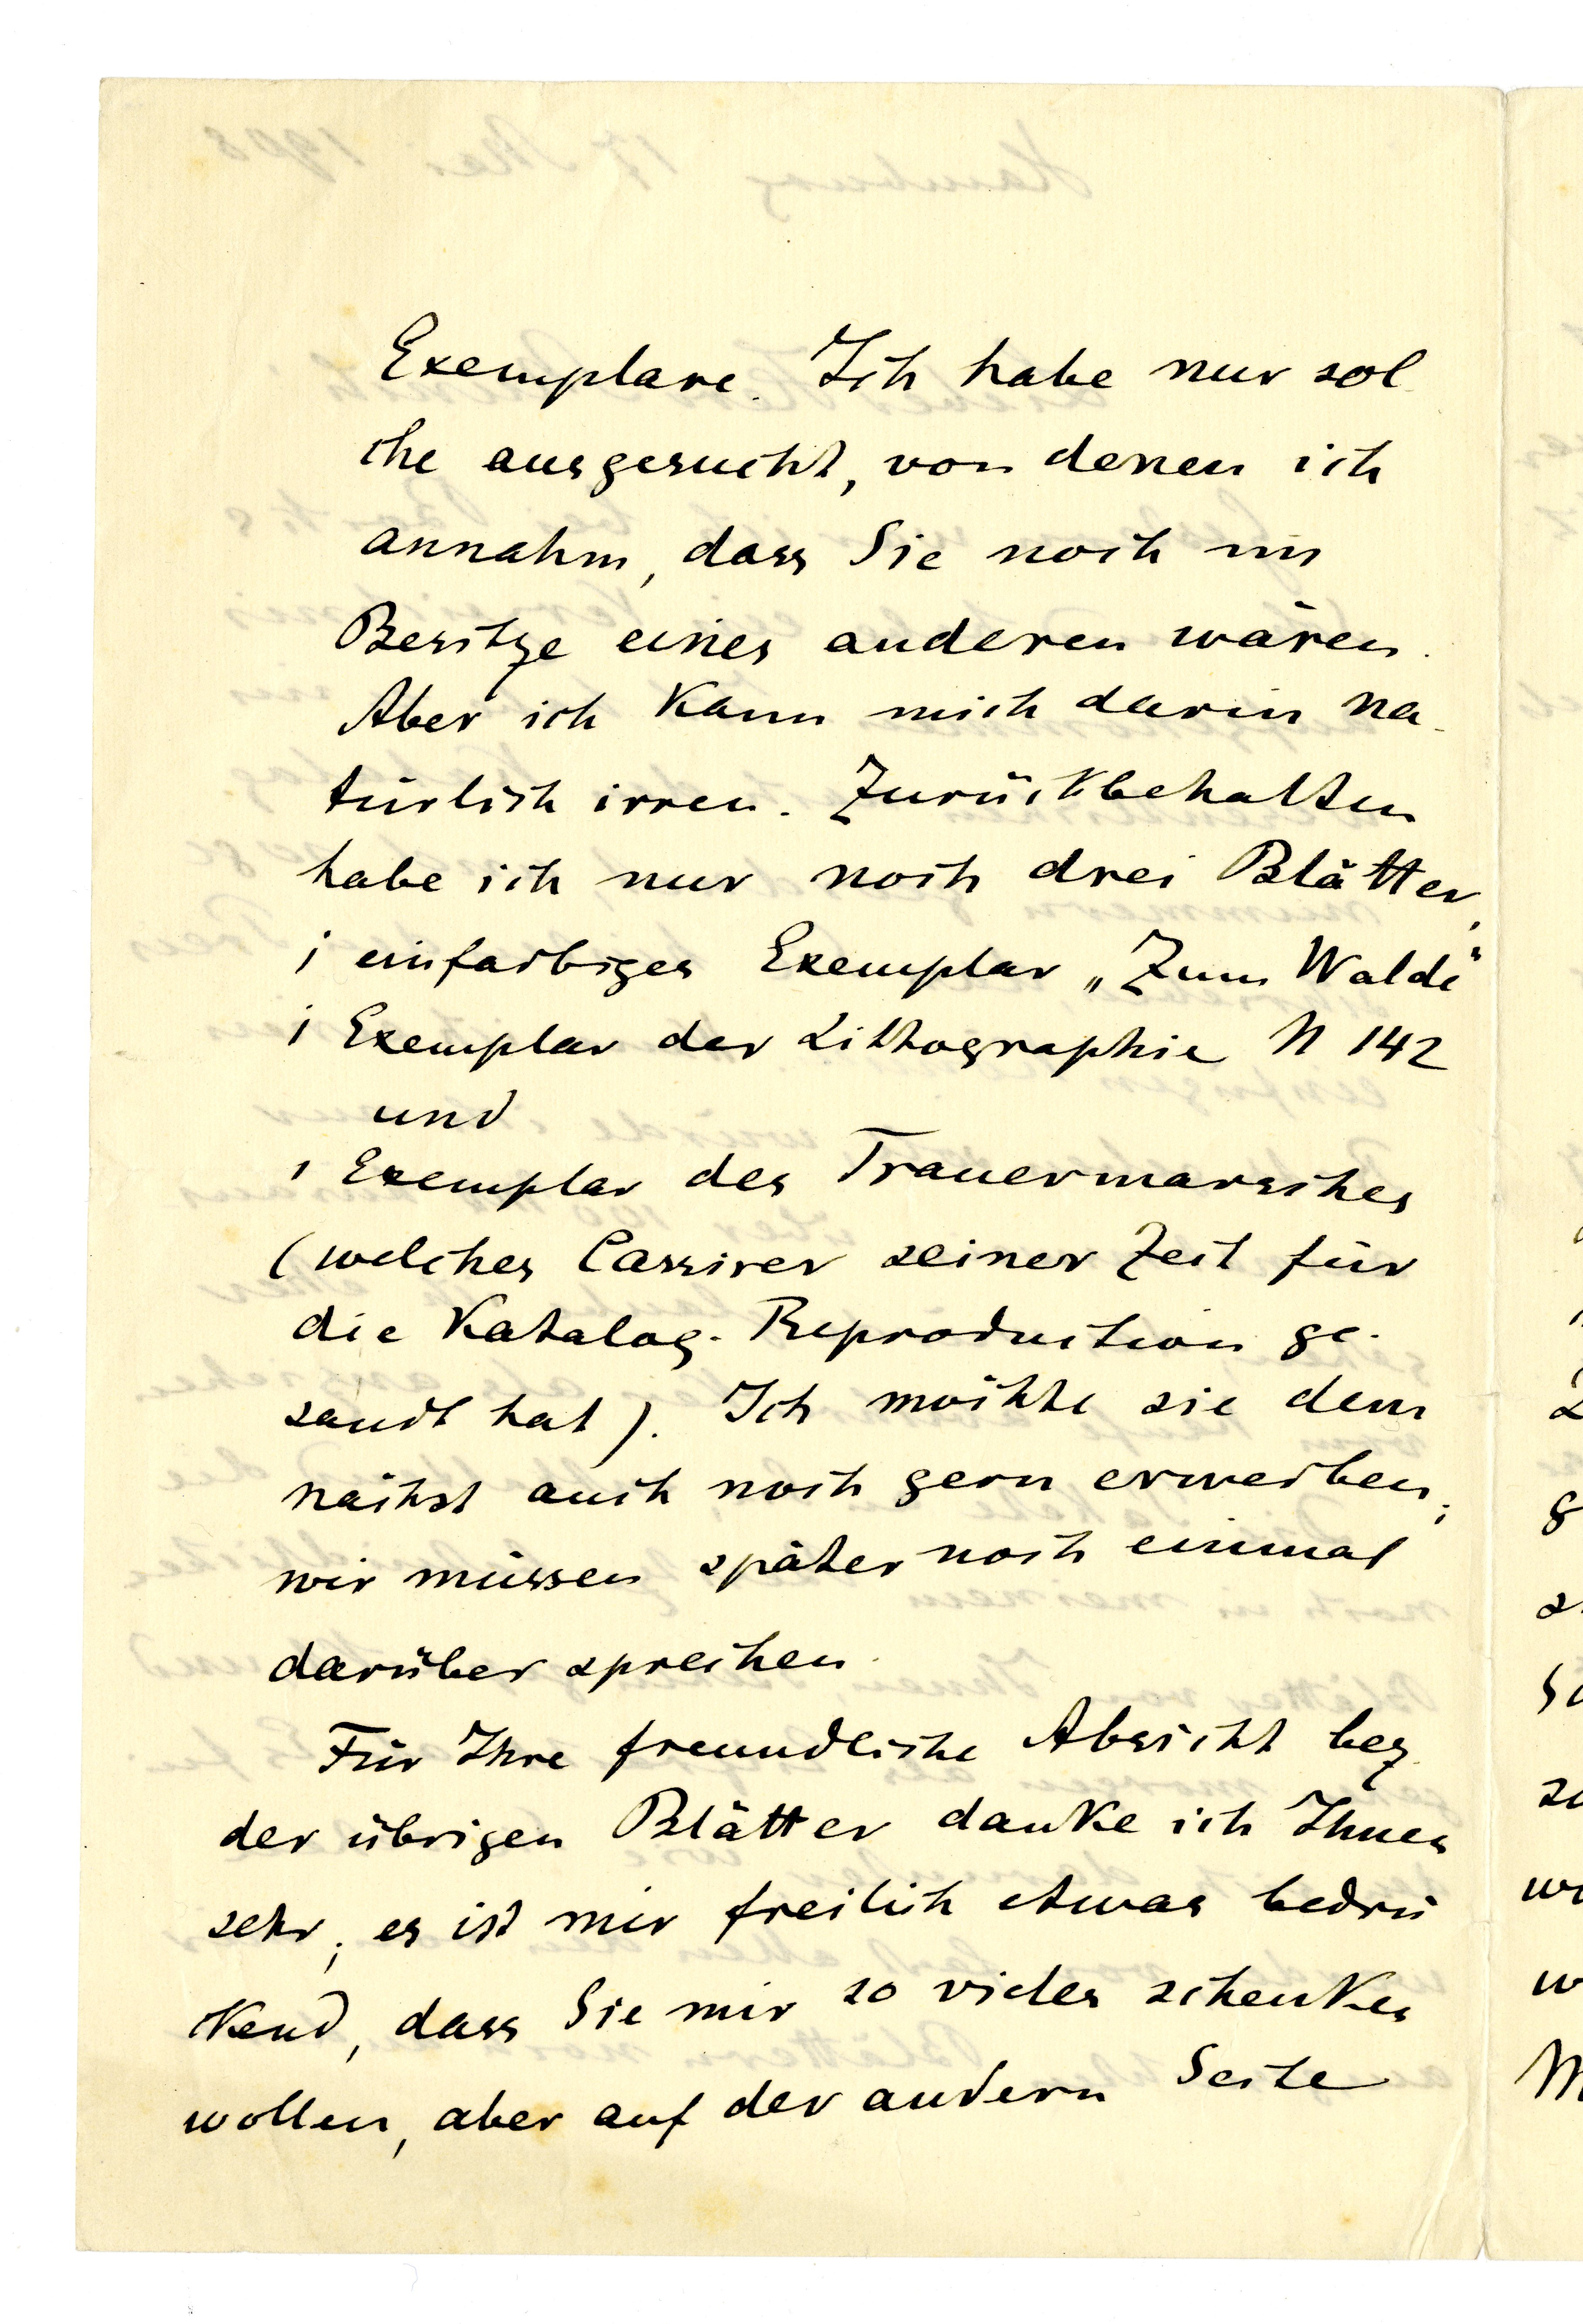 Exemplare. Ich habe nur sol
che ausgesucht, von denen ich
annahm, dass Sie noch im
Besitze eines anderen wären.
Aber ich kann mich darin na-
türlich irren. Zurückbehalten
habe ich nur noch drei Blätter,
1 einfarbiges Exemplar „Zum Walde"
1 Exemplar der Lithographie N 142
und
1 Exemplar des Trauermarsches
(welches Cassirer seiner Zeit für
die Katalog-Reproduction ge-
sandt hat). Ich möchte sie dem
nächst auch noch gern erwerben;
wir müssen später noch einmal
darüber sprechen.
Für Ihre freundliche Absicht bez.
der übrigen Blätter danke ich Ihnen
sehr; es ist mir freilich etwas bedrü
ckend, dass Sie mir so vieles schenken
wollen, aber auf der andern Seite